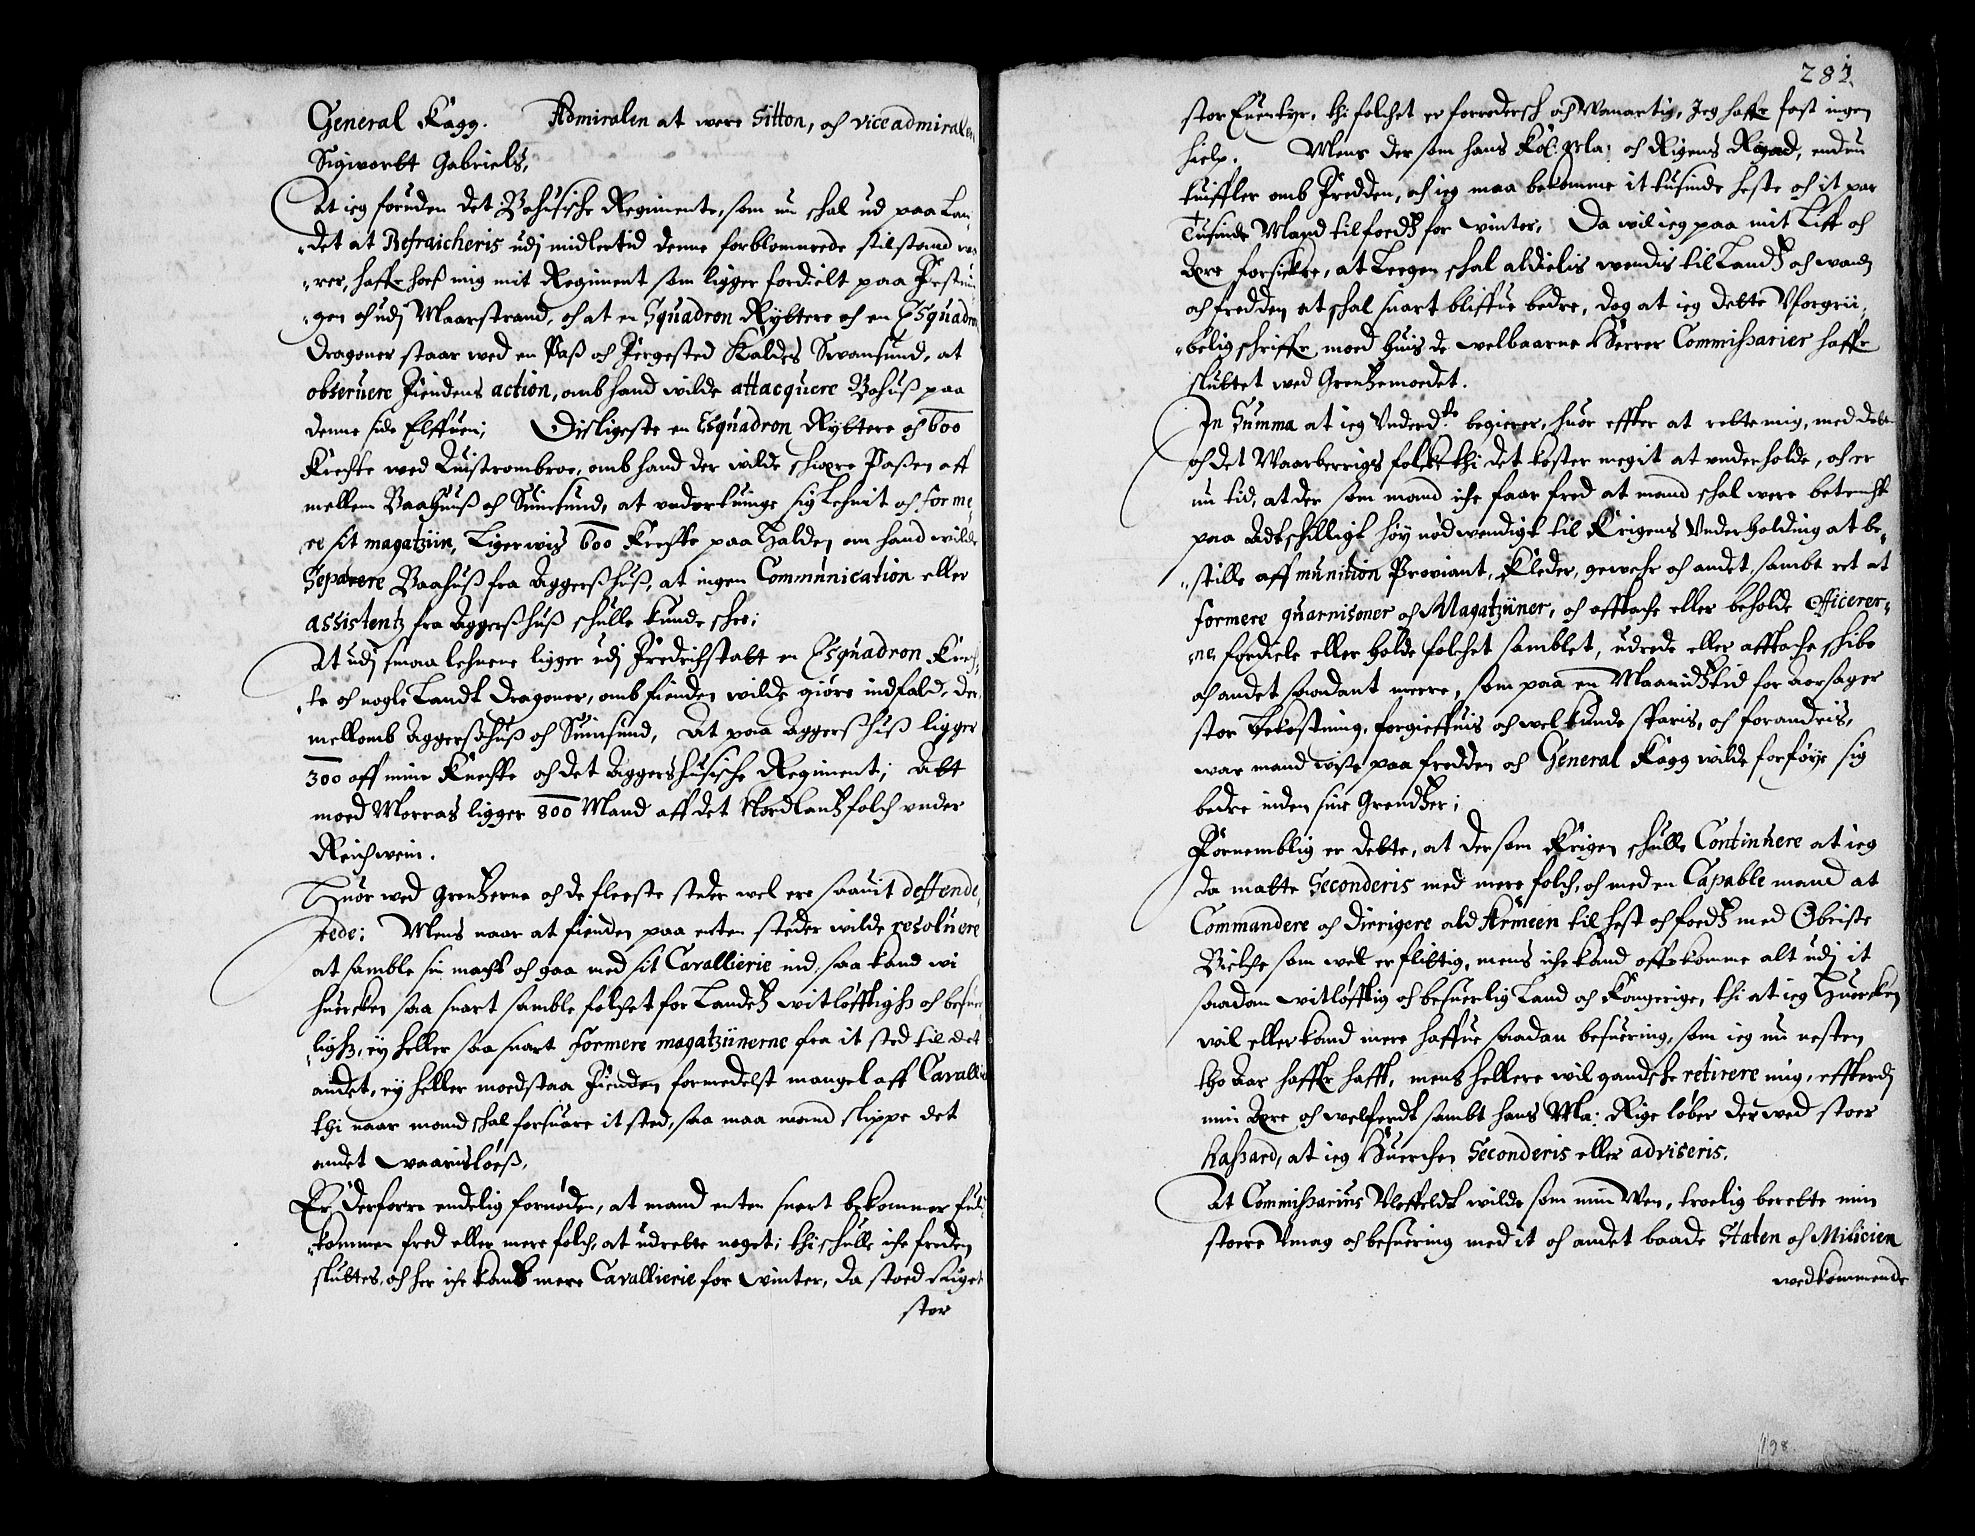 General Kagg. Admiralen at were Sitton, och viceadmiralen
Sigwortt Gabriels,
At ieg foruden det Bohusische Regimente, som nu schal ud paa Lan-
det at Refraicheris udj midlertid denne forblommede stilstand
rer, haffr hoeß mig mit Regiment som ligger fordielt paa Festnin-
gen och udj Maarstrand, och at en Squadron Ryttere och en Esquadron
Dragoner staar wed en Paß och Fergested Kaldes Swansund, at
obseruere Fiendens action, omb hand wilde attacquere Bohuß paa
denne side Elffuen; Disligeste en Esquadron Ryttere och 600
Knechte wed Quistrombroe, omb hand der wilde schiære Paßen aff
mellem Baahuß och Suinsund, at undertuinge sig Lehnit och forme-
re sit magatziin, Ligerwis 600 Knechte paa Halden om hand wilde
Seperere Baahuß fra Aggerßhuß, at ingen Communication eller
assistentz fra Aggerßhuß schulle kunde schee;
At udj smaa lehnene ligger udj Fredrichstatt en Esquadron Knech-
te och nogle Landt Dragoner, omb fienden wilde giøre indfald, der
mellomb Aggerßhuß och Suinsund, At paa Aggerßhuß ligger
300 aff mine Knechte och det Aggershusische Regiment; Att
moed Morras ligger 800 Mand aff det Nordlantz folch under
Reichwein.
Huor wed Grentzerne och de fleeste steder wel ere saauit deffende-
rede; Mens naar at fienden paa enten steder wilde resoluere
at samble sin macht och gaa med sit Cavallierie ind, saa kand wi
huercken saa snart samble folchet for Landetz witløfftighed och besuer-
lighed, ey heller saa snart formere magatziinerne fra it sted til det
andet, ey heller moedstaa Fienden formedelst mangel aff Cavallie
thi naar mand schal forsuare it sted, saa maa mand slippe det
andet waarisløeß,
Er Derforre endelig fornøden, at mand enten snart bekommer ful-
kommen fred eller mere folch, at udrette noget; thi schulle iche freden
sluttes, och her iche kand mere Cavallierie for winter, da stoed Riget
stor
281
stor Euentyr, thi folchet er forredersch och Wanartig, Jeg haffr fast ingen
hielp. Mens der som hans Kol: Ma: och Rigens Raad, endnu
tuiffler omb Fredden, och ieg maa bekomme it tusinde heste och it par
Tusinde Mand til foedß for winter, Da wil ieg paa mit Liff och
Ære forsickre, at Leegen schal aldielis wendis til Landß och wandß
och fredden at schal snart bliffue bedre, dog at ieg dette Uforgrii-
belig schriffr moed huis de welbaarne Herrer Commissarier haffr
sluttet wed Grentzemoedet.
In Summa at ieg Underd: begierer, huor effter at rette mig, med dette
och det Waarberrigs folch thi det koster megit at underholde, och er
nu tid, at der som mand iche faar fred at mand schal were betencht
paa Adtschilligt høy nødwendigt til Krigens Underholding at be-
stille aff munition Proviant, Kleder, gewehr och andet, sambt ret at
formere guarnisoner och Magatziiner, och afftache eller beholde officerer-
ne, fordiele eller holde folchet samblet, udrede eller afftache schibe
och andet saadant meere, som paa en Maanidtztid for aarsager
stor Bekostning, forgieffuis och wel kunde sparis, och forandris,
war mand wiße paa fredden och General Kagg wilde forføye sig
bedre inden sine Grendtzer;
Fornemblig er dette, at dersom Krigen schulle Continuere at ieg
da matte Seconderis med mere folch, och med en Capable mand at
Commandere och dirrigere ald Armeen til hest och foedß med Obriste
Bielche som wel er flittig, mens iche kand offrkomme alt udj it
saadan witløfftig och besuerlig Land och Kongerige, thi at ieg Huercken
wil eller kand mere haffue saadan besuering, som ieg nu nesten
tho Aar haffr hafft, mens hellere wil gandsche retirere mig, effterdj
min Ære och welferdt sambt hans Ma: Rige løber der wed stoer
hassard, at ieg Huerchen Seconderis eller adviseris.
At Commissarius Uleffeldt wilde som min Wen, troelig berette min
stoere Umag och besuering med it och andet baade Staten och Milicien
wedkommende
198